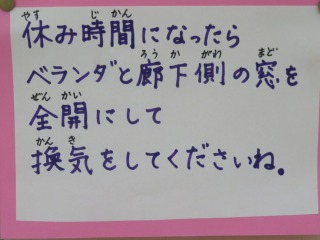 休み時間になったら
ベランダと廊下側の窓を
全開にして
換気をしてくださいね。